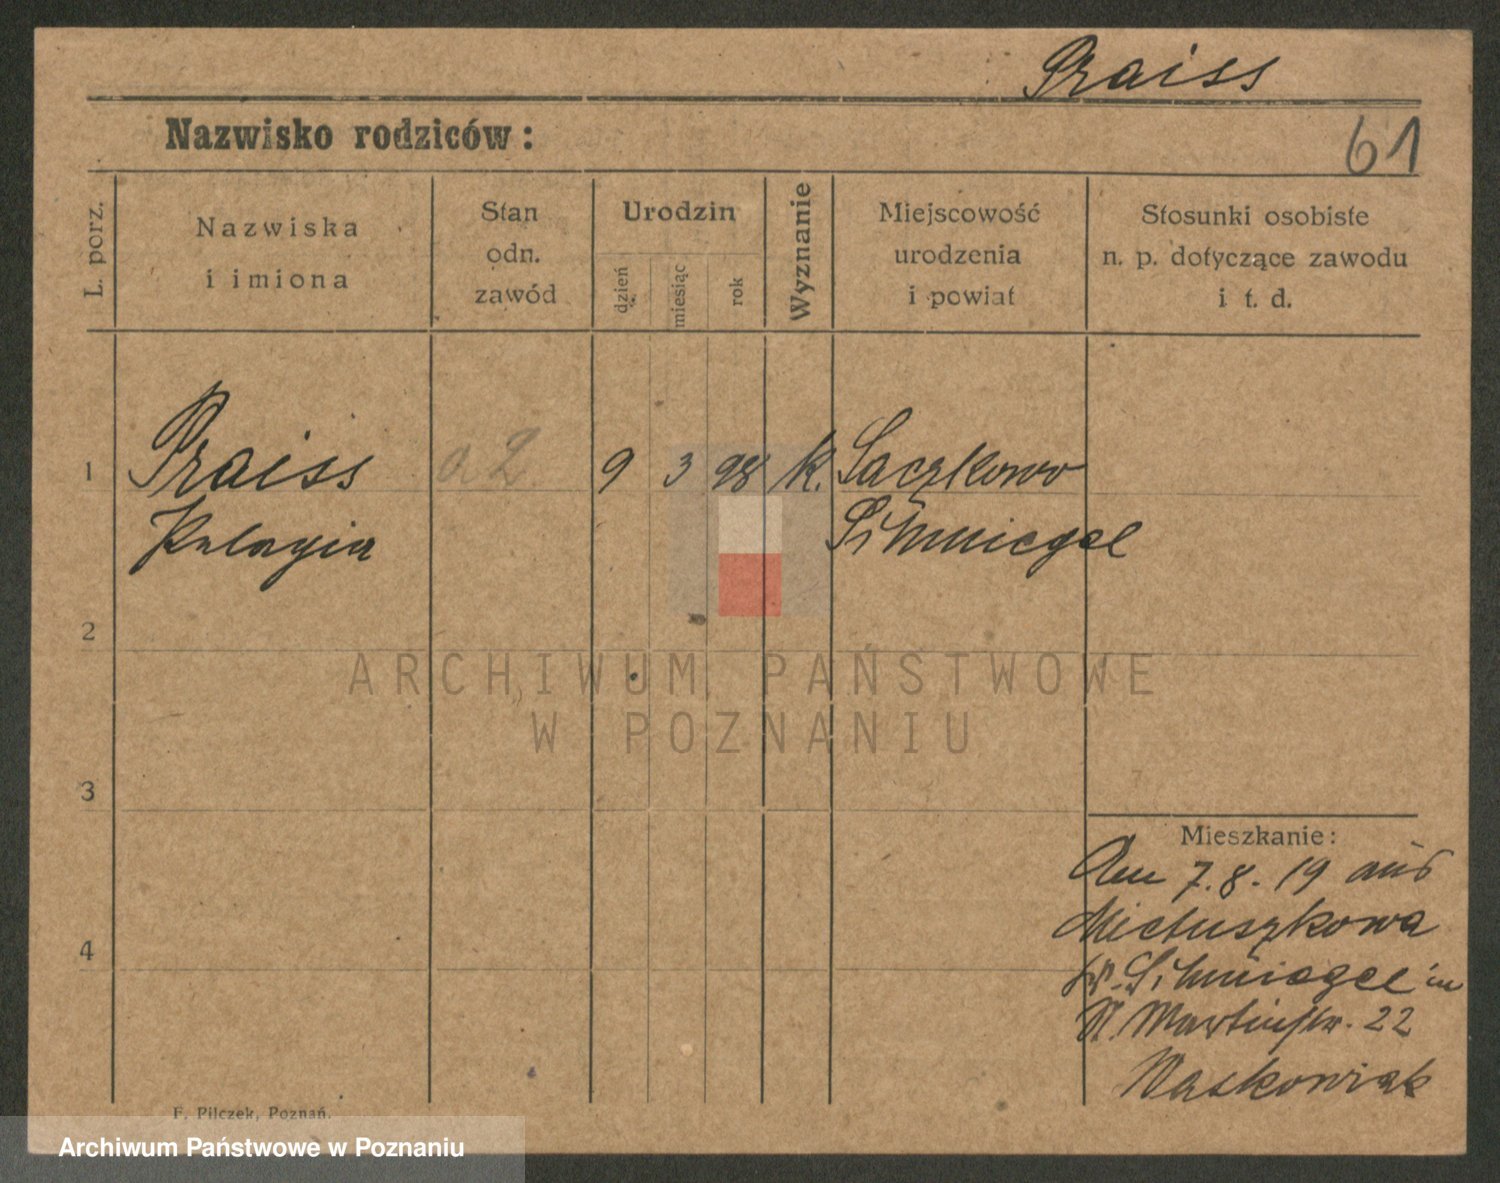 Praiss
Nazwisko rodziców:
61
L. porz.
Nazwiska
i imiona
Stan
odn.
zawód
Urodzin
dzień
miesiąc
rok
Wyznanie
Miejscowość
urodzenia
i powiat
Stosunki osobiste
n. p. dotyczące zawodu
i t. d.
1
Praiss
Pelagia
9 3 98 k. Saczkowo
Schmiegel
2
3
4
Mieszkanie:
Am 7.8.19 aus
Mietuszkowa
Kr. Schmiegel in
St. Martinstr. 22
Waskowiak
F. Pilczek, Poznań.
ARCHIWUM PAŃSTWOWE
W POZNANIU
Archiwum Państwowe w Poznaniu